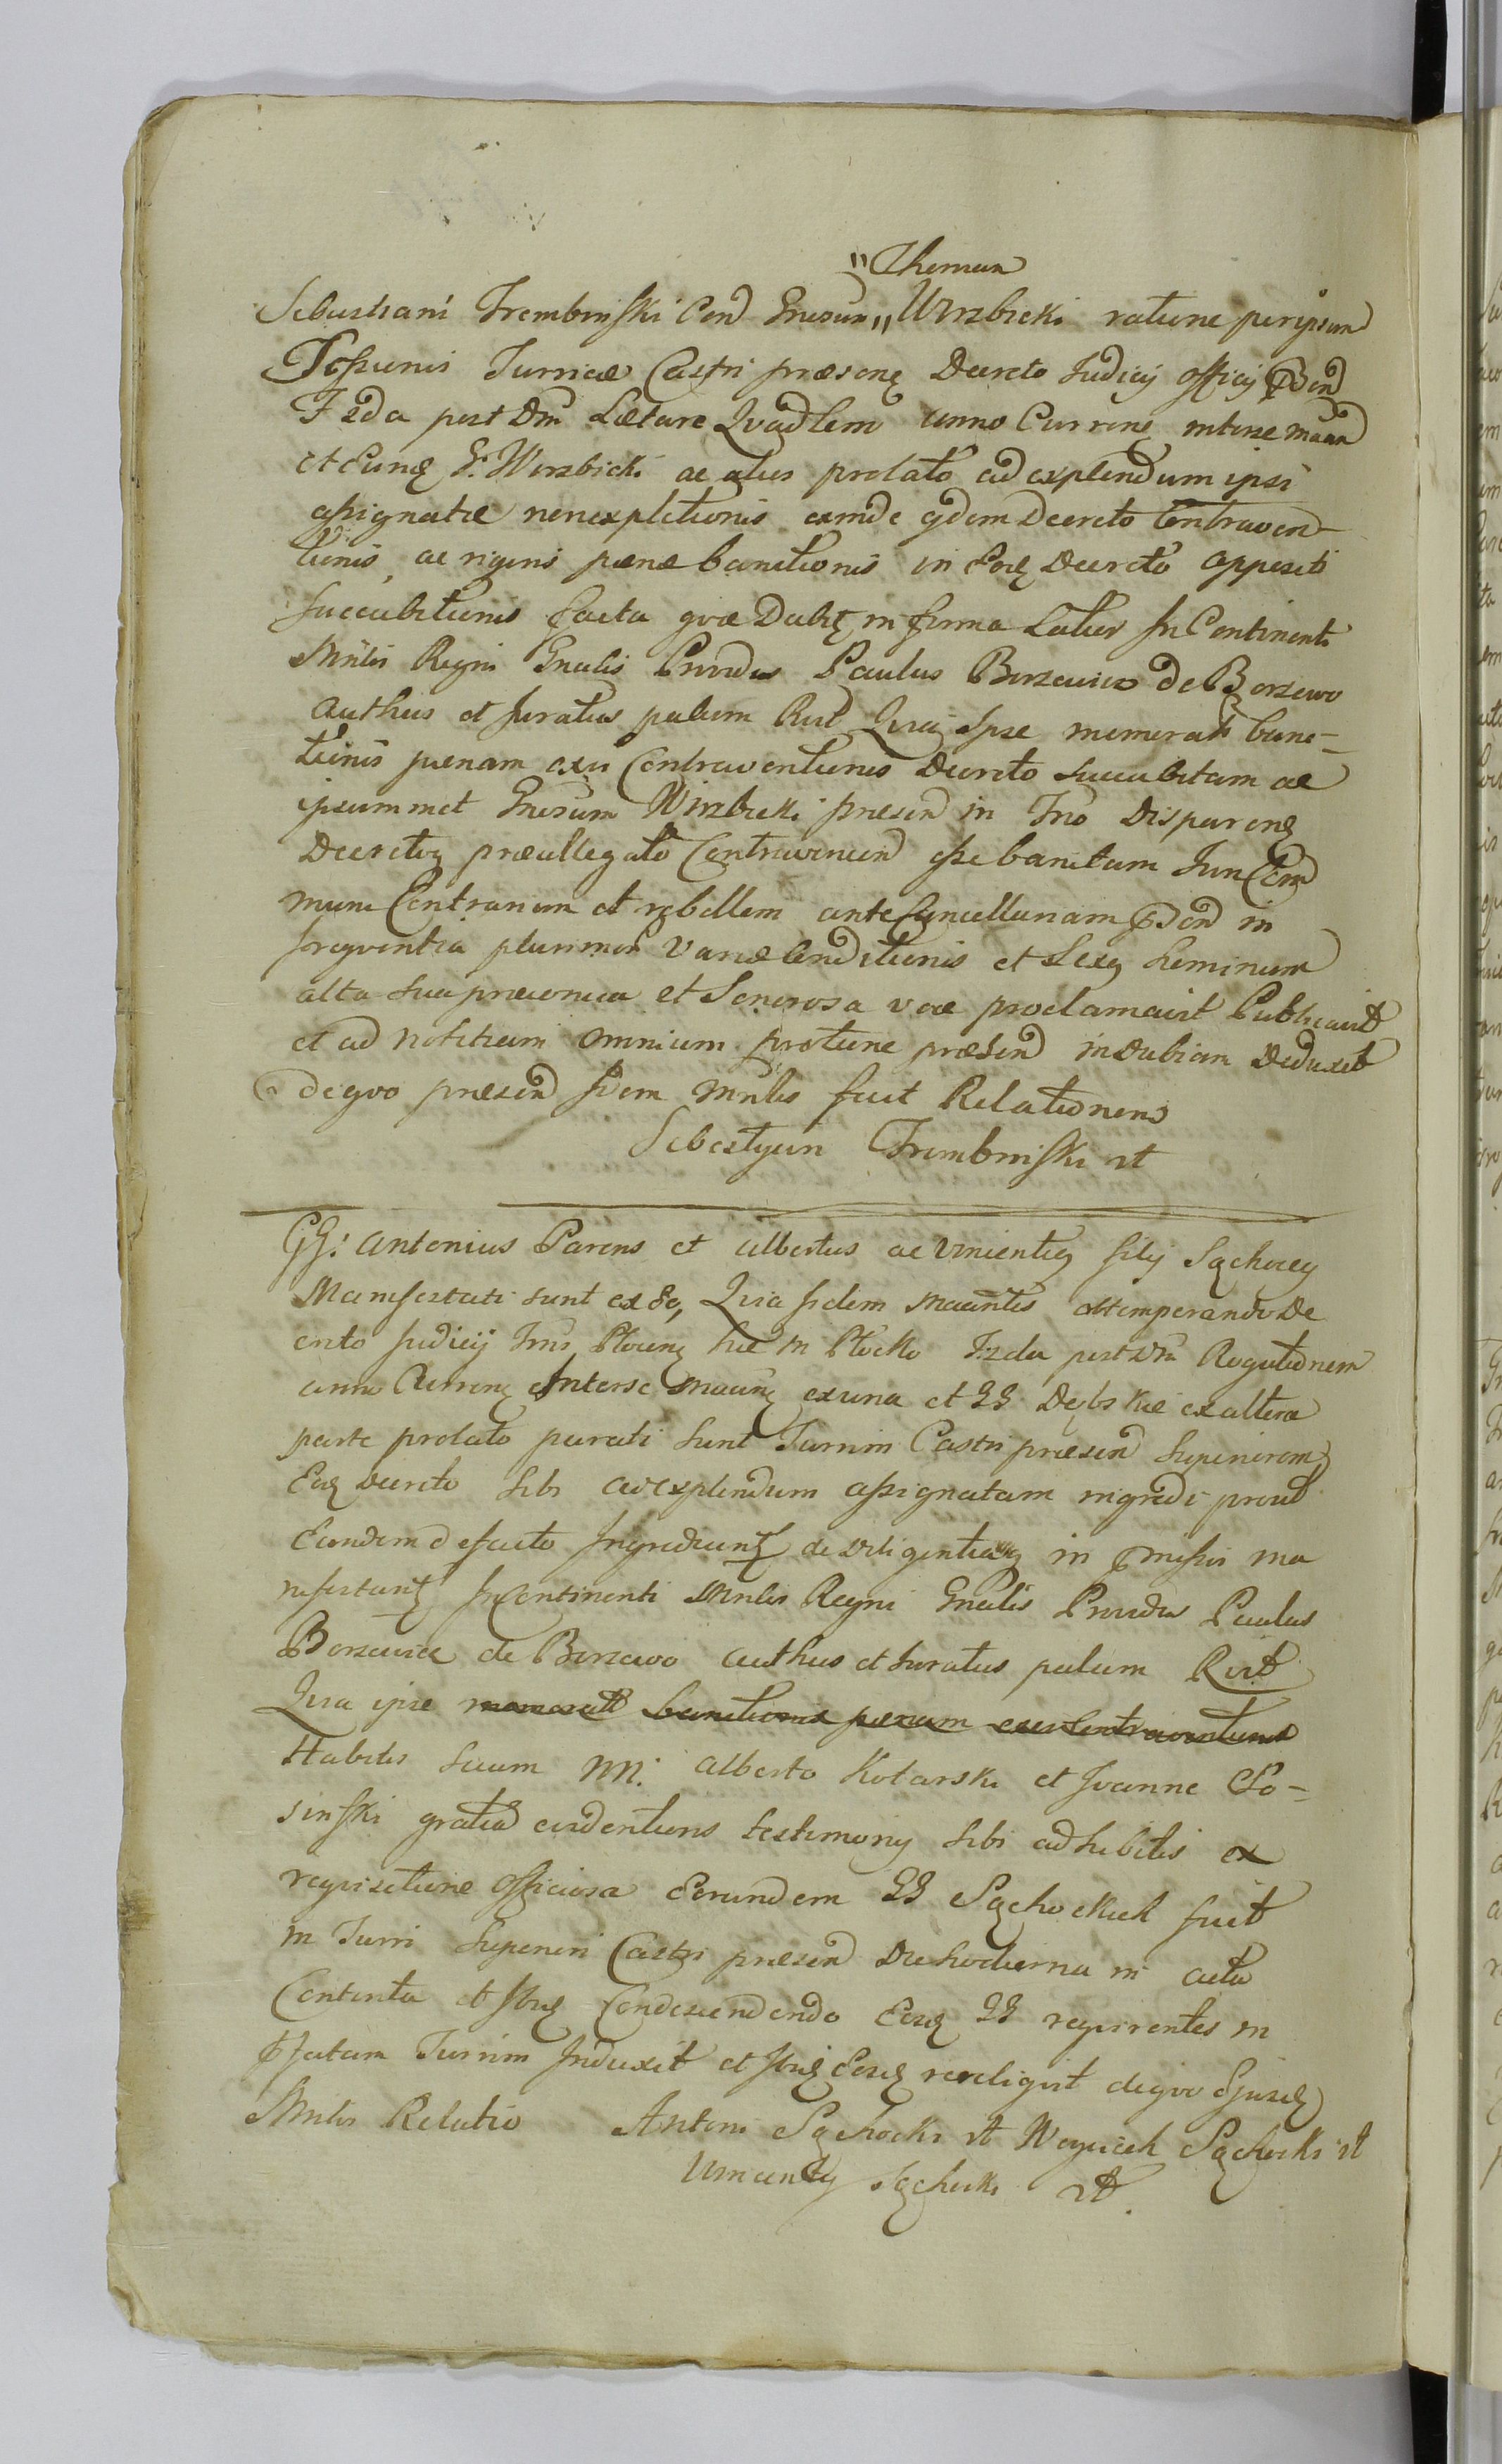 "Thoman
Sebastiani Trembinski Con Gnosum,, Wirzbicki ratione per ipsum
Sessionis Turricae Castri praesenś Decreto Judicij officij
F 2da post Dnm Laetare Qvadlem anno Curren interse
et eund G. Wirzbicki ac alias prolato ad explendum ipsi
assignatae non expletionis eamde qdem Decreto Contraven-
tionis, ac rigoris paenae banitionis in Eod Decreto appositi
succubitionis facta qvae Dabit in forma Latior In Continenti
Mnlis Regni Gnalis Providus Paulus Borzewicz de Borzewo
authus et Juratus palam Rivt Qvia Ipse memorat bani-
tionis paenam exvi Contraventionis Decreto succubitam ac
ipsummet Gnosum Wirzbicki praesen in Trno Disparen
Decretoq praeallegato Contravenien esse banitum
mune Contrarium et rebellem ante Cancellariam in
freqventia plurimor variae Conditionis et Sexq hominum
alta sua praeconica et Sonorosa voce proclamavit Publicavit
et ad notitiam omnium protunc praesen indubiam Deduxit
de qvo praesen idem Mnlis fecit Relationem
Sebestyan Trembinski
GG: Antonius Parens et Albertus ac Vincentiq filij Sąchoccy
Manifestati sunt ex eo, Qvia iidem Maantes obtemperando De
creto Judicij Trns Plocen hic in Plocko F. 2da post Dnm Rogationem
anno Curren Interse Maan ex una et GG Dębskie ex altera
parte prolato parati sunt Turrim Castri praesen Superiorem
Eod Decreto Sibi ad explendum assignatam ingredi prout
Eandem de facto Ingrediunt de diligentiaq in pmissis ma
nifestant Incontinenti Mnlis Regni Gnalis Providus Paulus
Borzewicz de Borzewo authus et Juratus palam Rivt
Qvia ipse memorat banitionis paenam exvi Contraventionis
Habitis secum NN: Alberto Kolarski et Joanne Cło-
sinski gratia evidentioris testimonij sibi adhibitis ex
reqvisitione officiosa Eorundem GG Sąchockich fuit
in Turri Superiori Castri praesen Die hodierna in actu
Contenta et Ibid Condescendendo Eosd GG reqvirentes in
pfatam Turrim Induxit et Ibid Eosd rereliqvit de qvo Ejusd
Mnlis Relatio Antoni Sąchocki Woyciech Sąchocki
Vincenty Sąchocki